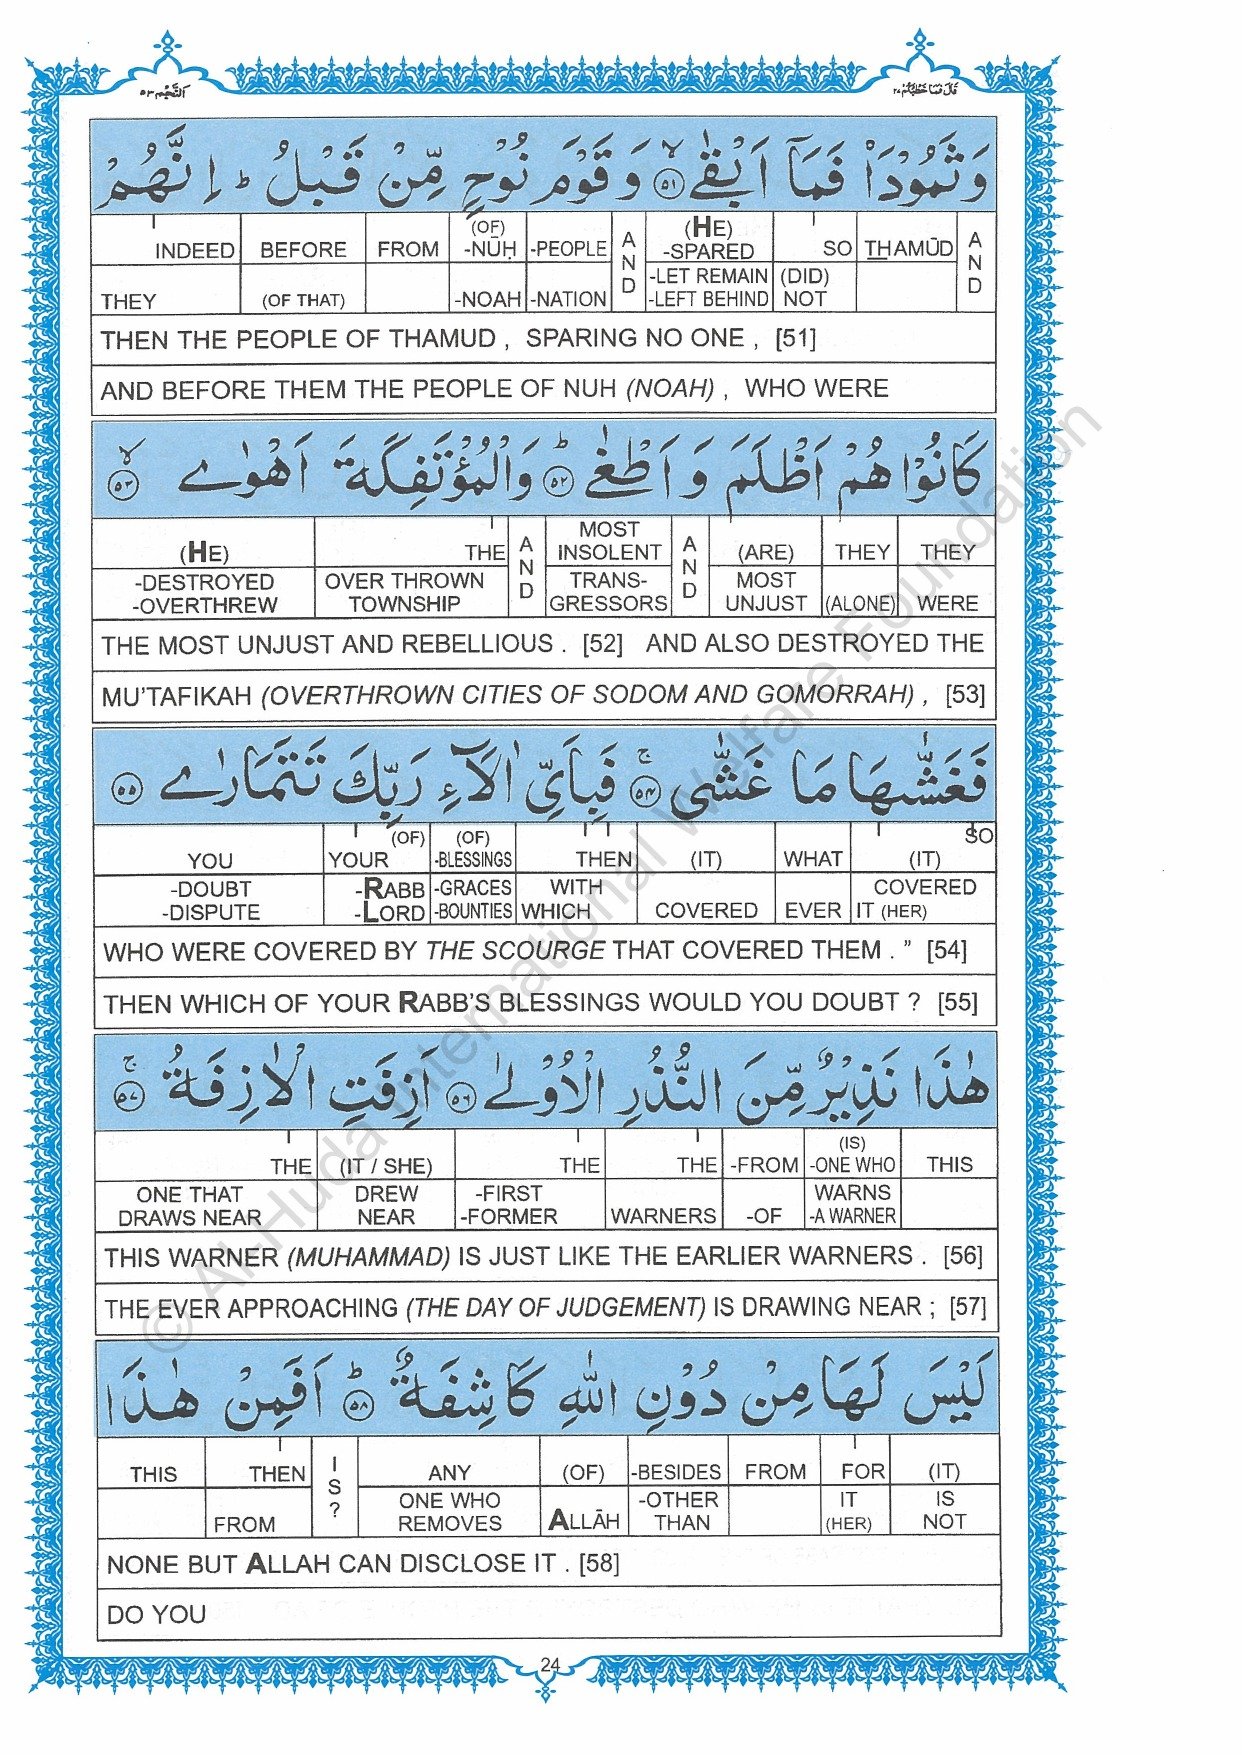 قَالَ فَمَا خَطْبُكُمْ ٢٧
اَلنَّجْم ٥٣
وَ ثَمُوْدَا۠ فَمَاۤ اَبْقٰىۙ ٥١ وَ قَوْمَ نُوْحٍ مِّنْ قَبْلُ ؕ اِنَّهُمْ
INDEED BEFORE FROM (OF) -NŪḤ -PEOPLE AND (HE) -SPARED SO THAMŪD AND
THEY (OF THAT) -NOAH -NATION -LET REMAIN -LEFT BEHIND (DID) NOT
THEN THE PEOPLE OF THAMUD , SPARING NO ONE , [51]
AND BEFORE THEM THE PEOPLE OF NUH (NOAH) , WHO WERE
كَانُوْا هُمْ اَظْلَمَ وَ اَطْغٰىؕ ٥٢ وَالْمُؤْتَفِكَةَ اَهْوٰىۙ ٥٣
(HE) THE AND MOST INSOLENT AND (ARE) THEY THEY
-DESTROYED -OVERTHREW OVER THROWN TOWNSHIP TRANS- GRESSORS MOST UNJUST (ALONE) WERE
THE MOST UNJUST AND REBELLIOUS . [52] AND ALSO DESTROYED THE
MU’TAFIKAH (OVERTHROWN CITIES OF SODOM AND GOMORRAH) , [53]
فَغَشّٰىهَا مَا غَشّٰىۚ ٥٤ فَبِاَيِّ اٰلَآءِ رَبِّكَ تَتَمَارٰى ٥٥
YOU YOUR (OF) (OF) -BLESSINGS THEN (IT) WHAT (IT) SO
-DOUBT -DISPUTE -RABB -LORD -GRACES -BOUNTIES WITH WHICH COVERED EVER COVERED IT (HER)
WHO WERE COVERED BY THE SCOURGE THAT COVERED THEM . ” [54]
THEN WHICH OF YOUR RABB’S BLESSINGS WOULD YOU DOUBT ? [55]
هٰذَا نَذِيْرٌ مِّنَ النُّذُرِ الْاُوْلٰى ٥٦ اَزِفَتِ الْاٰزِفَةُۚ ٥٧
THE (IT / SHE) THE THE -FROM (IS) -ONE WHO THIS
ONE THAT DRAWS NEAR DREW NEAR -FIRST -FORMER WARNERS -OF WARNS -A WARNER
THIS WARNER (MUHAMMAD) IS JUST LIKE THE EARLIER WARNERS . [56]
THE EVER APPROACHING (THE DAY OF JUDGEMENT) IS DRAWING NEAR ; [57]
لَيْسَ لَهَا مِنْ دُوْنِ اللّٰهِ كَاشِفَةٌؕ ٥٨ اَفَمِنْ هٰذَا
THIS THEN IS? ANY (OF) -BESIDES FROM FOR (IT)
FROM ONE WHO REMOVES ALLĀH -OTHER THAN IT (HER) IS NOT
NONE BUT ALLAH CAN DISCLOSE IT . [58]
DO YOU
24
© Al-Huda International Welfare Foundation